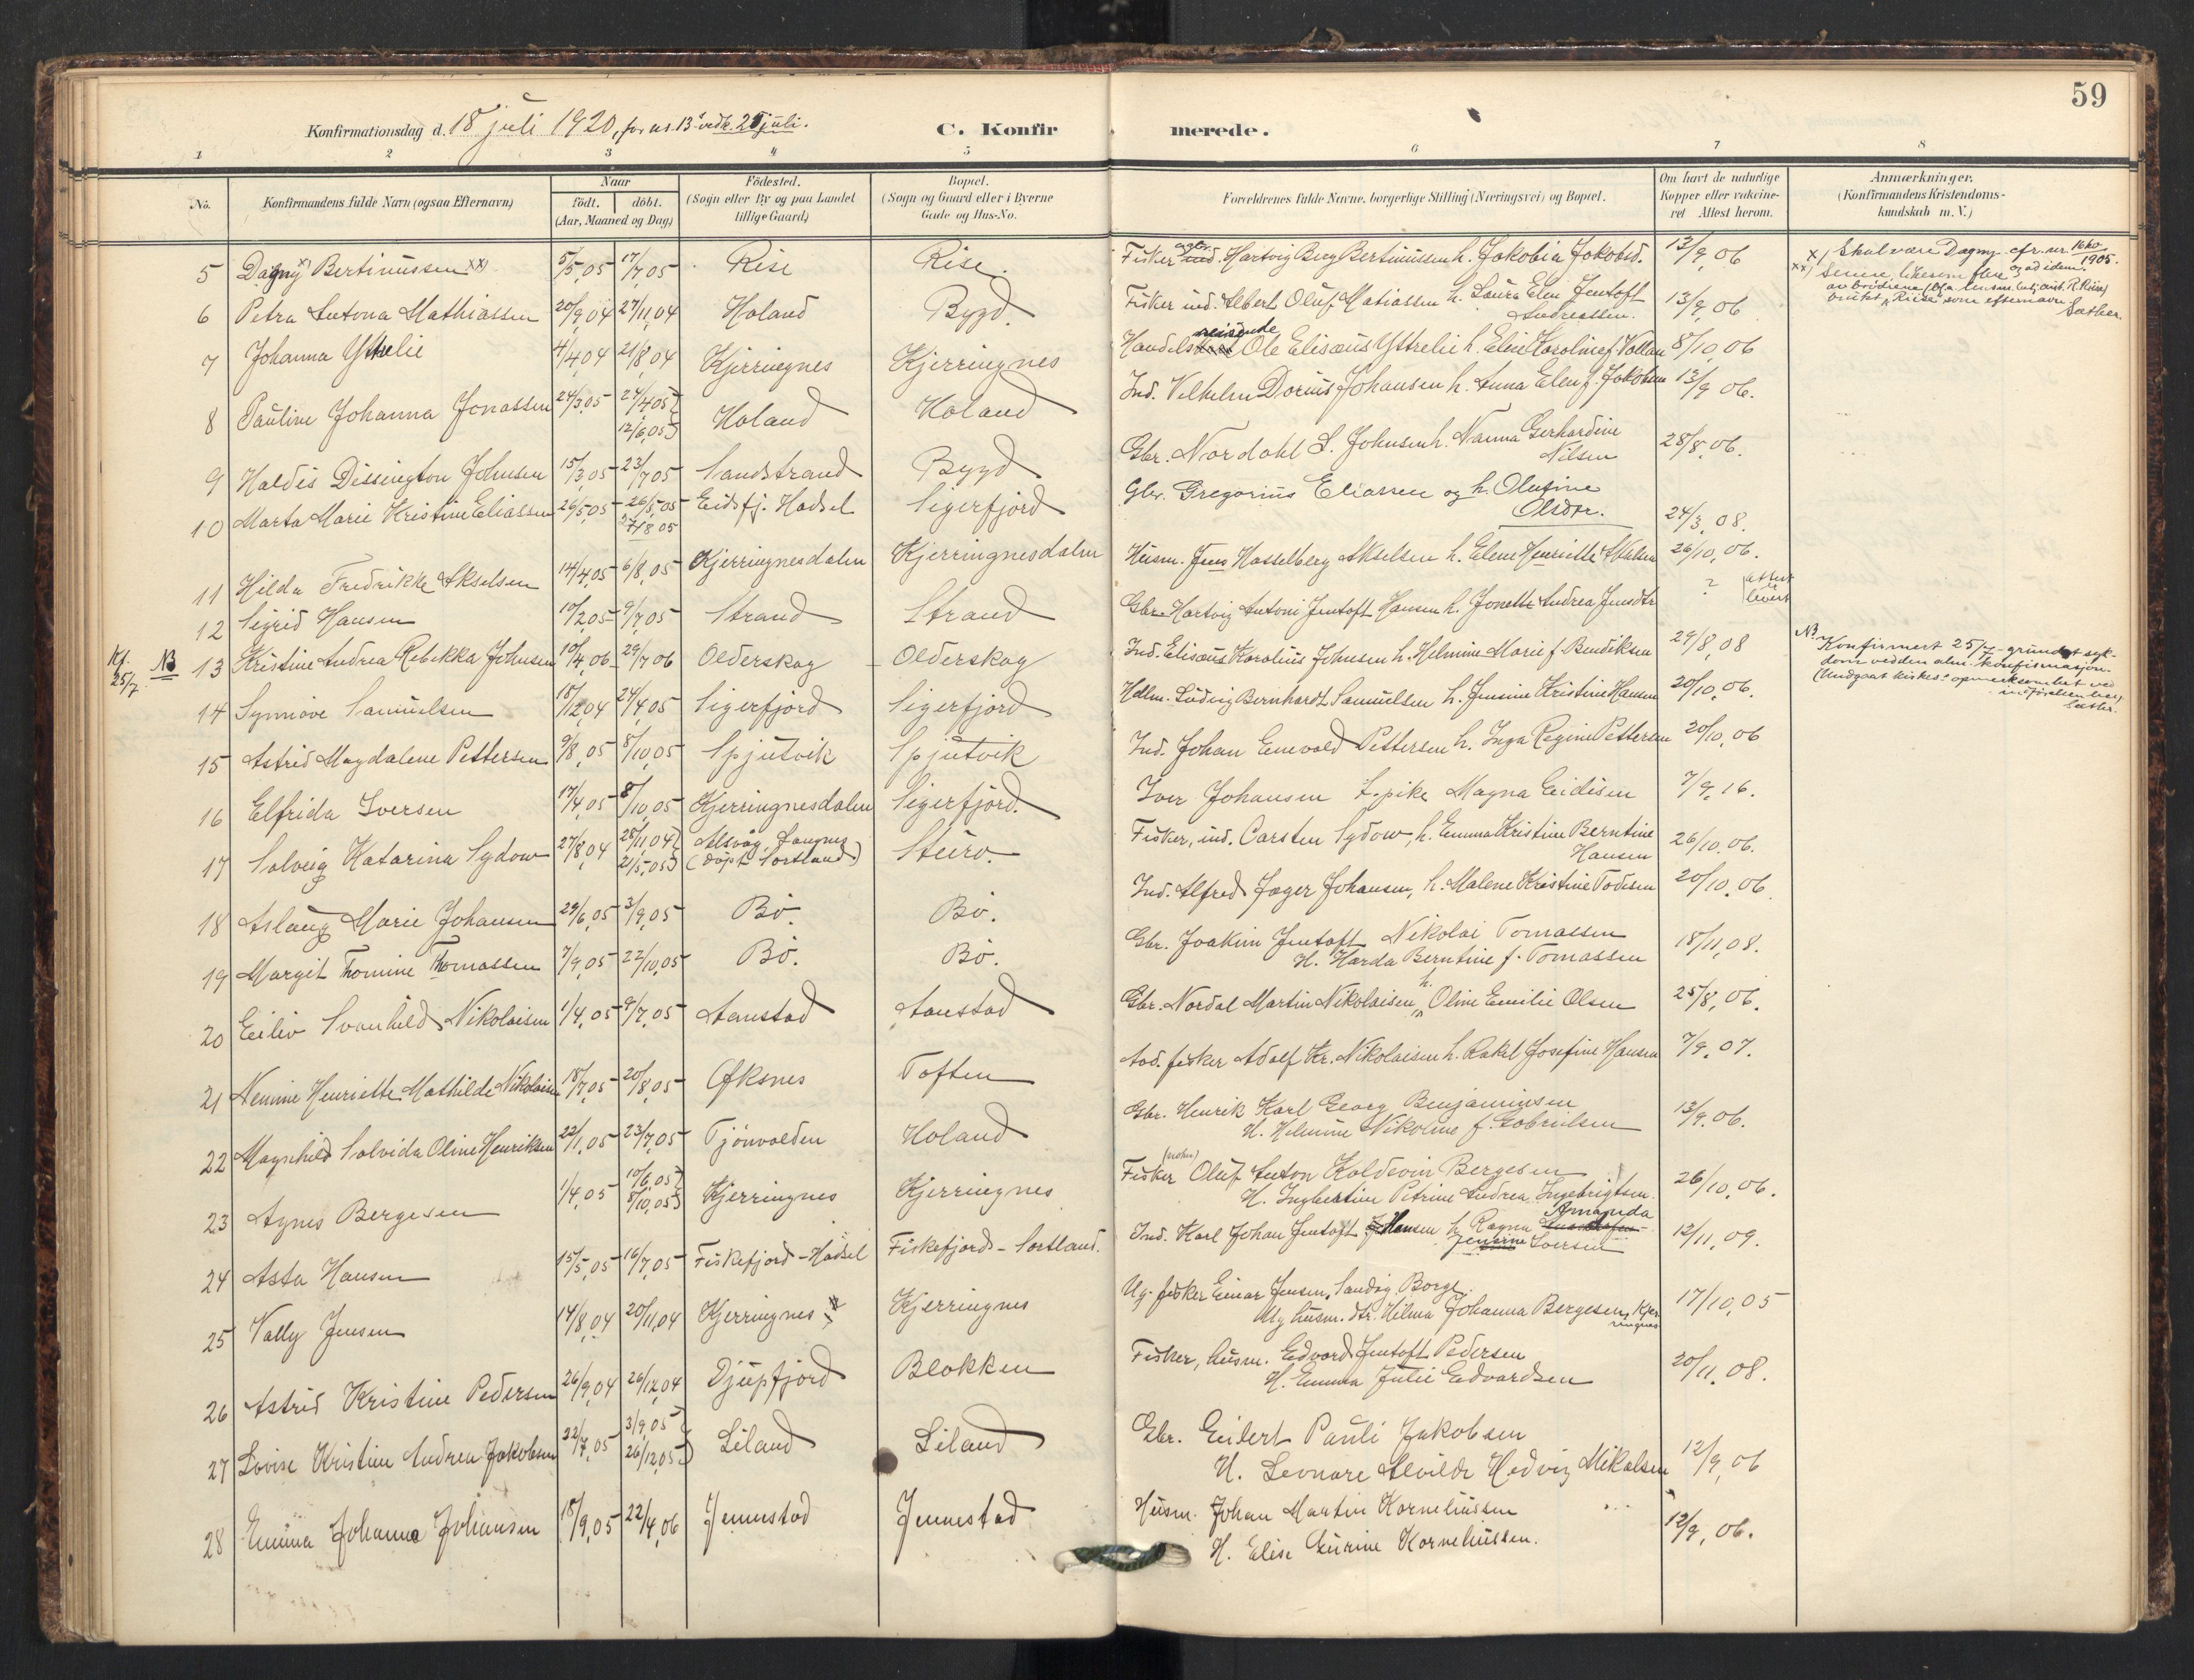 59
Konfirmationsdag d. 18 juli 1920, for nr. 13's vedk. 25 juli.
C. Konfirmerede.
1 2 3 4 5 6 7 8
No. Konfirmandens fulde Navn (ogsaa Efternavn) Naar födt. döbt. (Aar, Maaned og Dag) Födested. (Sogn eller By og paa Landet tillige Gaard) Bopæl. (Sogn og Gaard eller i Byerne Gade og Hus-No. Forældrenes fulde Navne, borgerlige Stilling (Næringsvei) og Bopæl. Om havt de naturlige Kopper eller vakcineret Attest herom. Anmærkninger. (Konfirmandens Kristendomskundskab m. V.)
5 Dagny x) Bertinussen xx) 5/5,05 17/7,05 Rise Rise. Fisker Hartvig Berg Bertinussen h. Jakobia Jakobsd. 13/9,06 x) Skal være Dagny cfr. nr. 16 ko 1905.
6 Petra Antona Mathiassen 20/9,04 27/11,04 Holand Bygd. Fisker ind. Albert Oluf Matiassen h. Laura Elen Jentoft Andreassen. 13/9,06
7 Johanna Yttrelie 4/4,04 21/8,04 Kjerringnes Kjerringnes Handelsreisende Ole Elisæus Yttrelie h. Elise Karoline f. Vollan 8/10,06
8 Pauline Johanna Jonassen 24/3,05 24/4,05 12/6,05 Holand Holand Ind. Vilhelm Dorius Johansen h. Anna Elen f. Jakobsen 13/9,06.
9 Haldis Dissington Johnsen 15/3,05 23/7,05 Sandstrand Bygd Gbr. Nordahl L. Johnsen h. Nanna Gerhardine Nilsen 28/8,06.
10 Marta Marie Kristine Eliassen 26/5,05 26/5,05 27/8,05 Eidsfj. Hadsel Sigerfjord Gbr. Gregorius Eliassen og h. Olufine Olsdtr. 24/3,08.
11 Hilda Fredrikke Akselsen 14/4,05 6/8,05 Kjerringnesdalen Kjerringnesdalen Husm. Jens Hasselberg Akselsen h. Elene Henriette Akselsen 26/10,06.
12 Sigrid Hansen 10/2,05 9/7,05 Strand Strand Gbr. Hartvig Antoni Jentoft Hansen h. Jonette Andrea Jensdtr ? (attest levert
Kf. 25/7 NB 13 Kristine Andrea Rebekka Johnsen 10/4,06 29/7,06 Olderskog Olderskog Ind. Elisæus Karolius Johnsen h. Helmine Marie f. Bendiksen 29/8,08 NB. Konfirmert 25/7 grundet sykdom ved den alm. konfirmasjon.
14 Synnøve Samuelsen 18/12,04 24/4,05 Sigerfjord Sigerfjord Hdlm. Ludvig Bernhardt Samuelsen h. Jensine Kristine Hansen 20/10,06.
15 Astrid Magdalene Pettersen 9/8,05 8/10,05 Spjutvik Spjutvik Ind. Johan Enevold Pettersen h. Inga Regine Pettersen 20/10,06
16 Elfrida Iversen 17/4,05 8/10,05 Kjerringnesdalen Sigerfjord. Iver Johansen t. pike Magna Eidisen 7/9,16.
17 Solveig Katarina Sydow 27/8,04 28/11,04 21/5,05 Alsvåg, Langnes (døpt Sortland) Steiro. Fisker, ind. Carsten Sydow, h. Emma Kristine Berntine Hansen 26/10,06.
18 Aslaug Marie Johansen 29/6,05 3/9,05 Bø. Bø. Ind. Alfred Jæger Johansen, h. Malene Kristine Todesen 20/10,06.
19 Margit Thomine Thomassen 7/9,05 22/10,05 Bø. Bø. Gbr. Joakim Jentoft Nikolai Tomassen H. Harda Berntine f. Tomassen 18/11,08.
20 Eiliv Svanhild Nikolaisen 1/4,05 9/7,05 Aanstad Aanstad Gbr. Nordal Martin Nikolaisen, h. Oline Emilie Olsen 25/8,06.
21 Nennie Henriette Mathilde Nikolaisen 18/7,05 20/8,05 Øksnes Toften Aod. fisker Adolf Kr. Nikolaisen h. Rakel Josefine Hansen 7/9,07.
22 Magnhild Solvida Oline Henriksen 22/1,05 23/7,05 Tjønvolden Holand Gbr. Henrik Karl Georg Benjaminsen H. Helmine Nikoline f. Gabrielsen 13/9,06.
23 Agnes Bergesen 1/4,05 10/6,05 8/10,05 Kjerringnes Kjerringnes Fisker Oluf Anton Koldevin Bergesen H. Ingbertine Petrine Andrea Ingebrigtsen. 26/10,06.
24 Asta Hansen 15/5,05 16/7,05 Fiskefjord - Hadsel Fiskefjord - Sortland. Ind. Karl Johan Jentoft Hansen h. Ragna Amanda Jensine Iversen 12/11,09.
25 Vally Jensen 14/8,04 20/11,04 Kjerringnes Kjerringnes Ug. fisker Einar Jensen, Sandvig Borge. Ug husm. dtr. Hilma Johanna Bergesen, Kjerringnes 17/10,05
26 Astrid Kristine Pedersen 26/9,04 26/12,04 Djupfjord Blokken Fisker, husm. Edvard Jentoft Pedersen H. Emma Julie Edvardsen 20/11,08.
27 Lovise Kristine Andrea Jakobsen 22/7,05 3/9,05 26/12,05 Liland Liland Gbr. Eilert Pauli Jakobsen H. Leonare Alvilde Hedvig Mikalsen 12/9,06
28 Emma Johanna Johansen 18/9,05 22/4,06 Jennestad Jennestad Husm. Johan Martin Korneliussen H. Elise Eurine Korneliussen. 12/9,06.